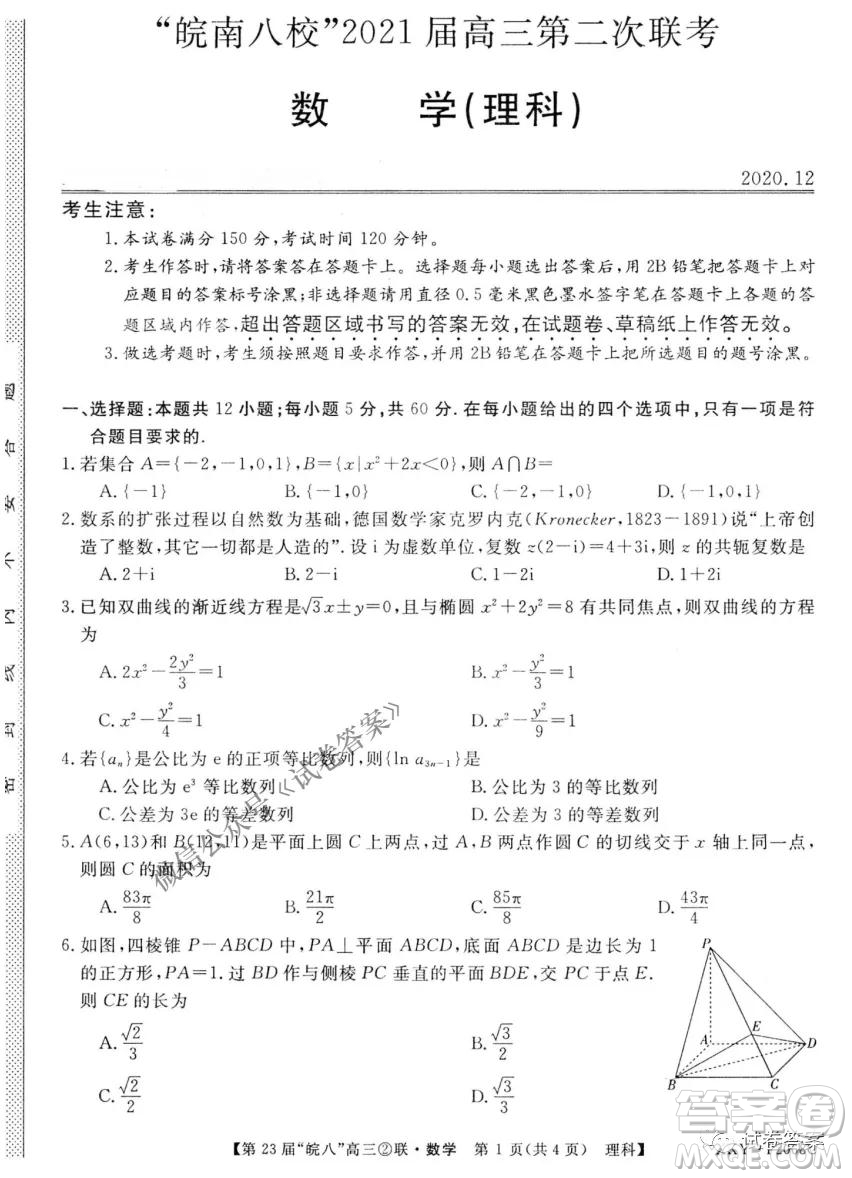 “皖南八校”2021届高三第二次联考
数 学(理科)
2020.12
考生注意:
1.本试卷满分150分,考试时间120分钟。
2.考生作答时,请将答案答在答题卡上。选择题每小题选出答案后,用2B铅笔把答题卡上对
应题目的答案标号涂黑;非选择题请用直径0.5毫米黑色墨水签字笔在答题卡上各题的答
题区域内作答,超出答题区域书写的答案无效,在试题卷、草稿纸上作答无效。
3.做选考题时,考生须按照题目要求作答,并用2B铅笔在答题卡上把所选题目的题号涂黑。
一、选择题:本题共12小题;每小题5分,共60分.在每小题给出的四个选项中,只有一项是符
合题目要求的.
1.若集合A={-2,-1,0,1},B={x|x²+2x<0},则A∩B=
A.{-1} B.{-1,0} C.{-2,-1,0} D.{-1,0,1}
2.数系的扩张过程以自然数为基础,德国数学家克罗内克(Kronecker,1823-1891)说“上帝创
造了整数,其它一切都是人造的”.设i为虚数单位,复数z(2-i)=4+3i,则z的共轭复数是
A.2+i B.2-i C.1-2i D.1+2i
3.已知双曲线的渐近线方程是√3x±y=0,且与椭圆x²+2y²=8有共同焦点,则双曲线的方程
为
A.2x²-2y²/3=1 B.x²-y²/3=1
C.x²-y²/4=1 D.x²-y²/9=1
4.若{aₙ}是公比为e的正项等比数列,则{ln a₃ₙ₋₁}是
A.公比为e³等比数列 B.公比为3等比数列
C.公差为3e的等差数列 D.公差为3的等差数列
5.A(6,13)和B(12,11)是平面上圆C上两点,过A,B两点作圆C的切线交于x轴上同一点,
则圆C的面积为
A.83π/8 B.21π/2 C.85π/8 D.43π/4
6.如图,四棱锥P-ABCD中,PA⊥平面ABCD,底面ABCD是边长为1
的正方形,PA=1.过BD作与侧棱PC垂直的平面BDE,交PC于点E.
则CE的长为
A.√2/3 B.√3/2
C.√2/2 D.√3/3
P
E
A
D
B
C
【第23届“皖八”高三②联·数学 第1页(共4页) 理科】
微信公众号《试卷答案》
试卷答案
密 封 线 内 不 要 答 题